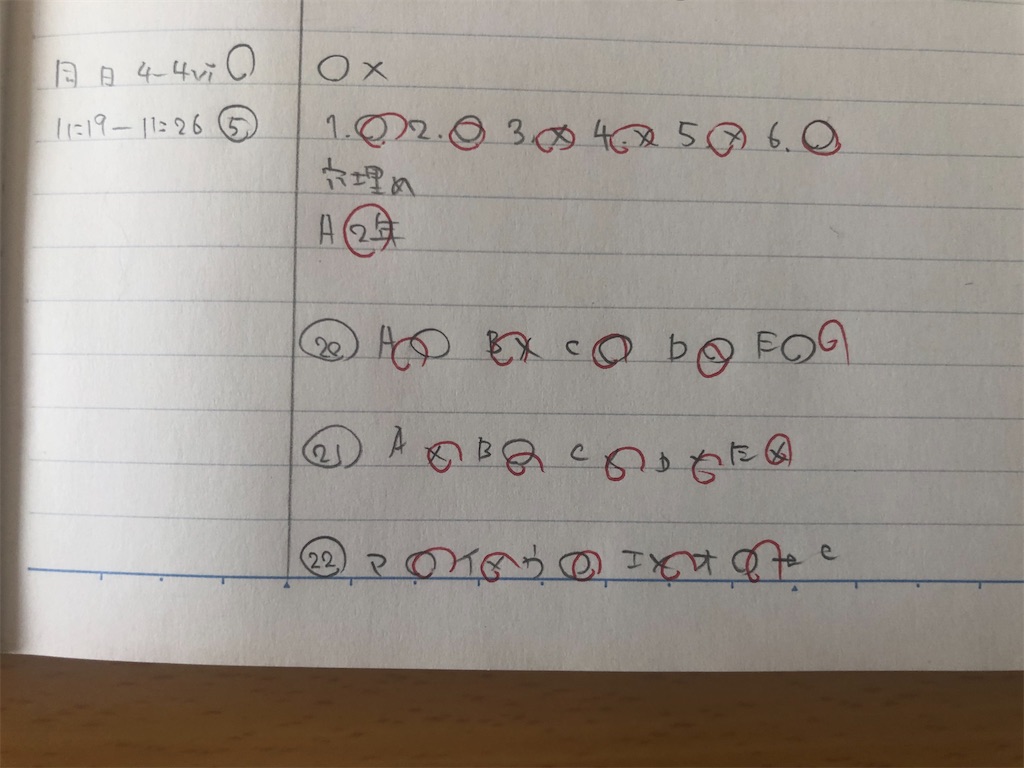 月 日 4-4vi ○ ○ ×
11:19-11:26 ⑤ 1.○ 2.○ 3.× 4.× 5 × 6.○
穴埋め
A 2年
⑳ A ○ B × C ○ D ○ E ○
㉑ A × B ○ C ○ D × E ×
㉒ ア ○ イ × ウ ○ エ × オ ○ c